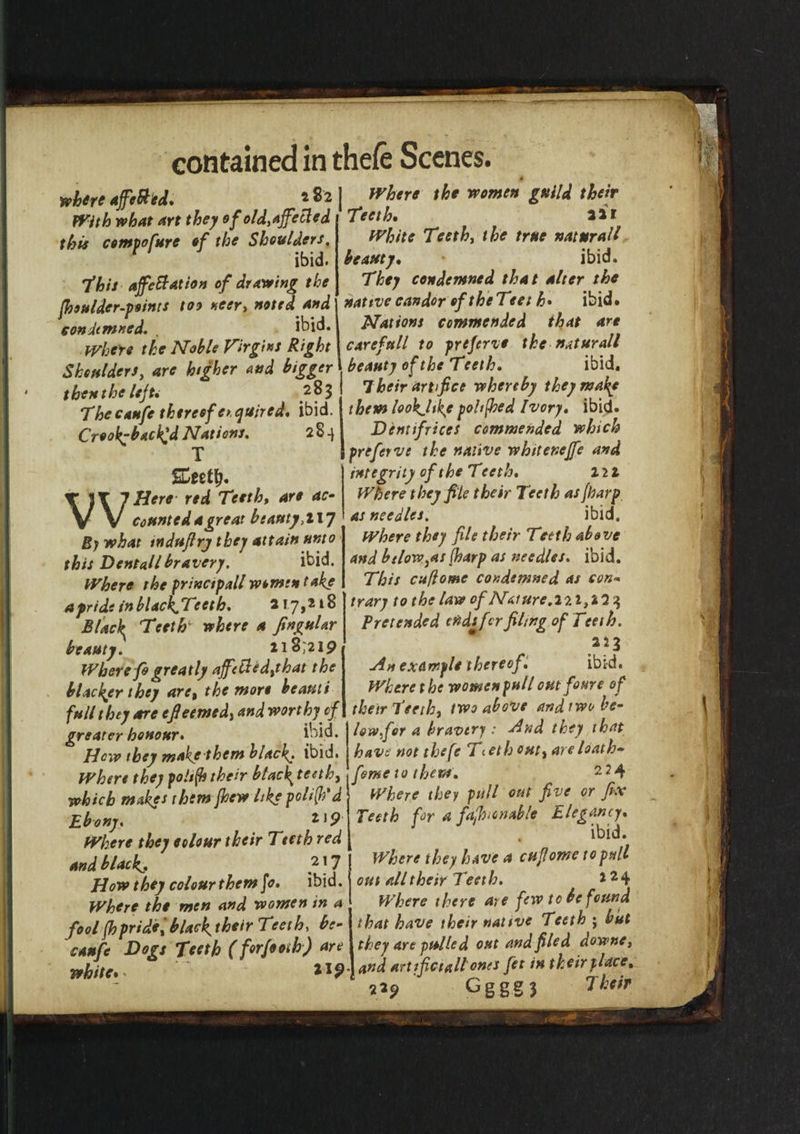 contained in theſe Scenes.
where affected. 282
With what art they of old, affected
this compoſure of the Shoulders.
ibid.
This affectation of drawing the
ſhoulder-points too neer, noted and
condemned. ibid.
Where the Noble Virgins Right
Shoulders, are higher and bigger
then the left. 283
The cauſe thereof enquired. ibid.
Crook-back'd Nations. 284
T
Teeth.
WHere red Teeth, are ac-
counted a great beauty, 217
By what induſtry they attain unto
this Dentall bravery. ibid.
Where the principall women take
a pride in black Teeth. 217,218
Black Teeth where a ſingular
beauty. 218,219
Where ſo greatly affected, that the
blacker they are, the more beauti
full they are eſteemed, and worthy of
greater honour. ibid.
How they make them black. ibid.
Where they poliſh their black teeth,
which makes them ſhew like poliſh'd
Ebony. 219
Where they colour their Teeth red
and black, 217
How they colour them ſo. ibid.
Where the men and women in a
fooliſh pride, black their Teeth, be-
cauſe Dogs Teeth (forſooth) are
white. 219
Where the women guild their
Teeth. 221
White Teeth, the true naturall
beauty. ibid.
They condemned that alter the
native candor of the Teeth. ibid.
Nations commended that are
carefull to preſerve the naturall
beauty of the Teeth. ibid.
Their artifice whereby they make
them look like poliſhed Ivory. ibid.
Dentifrices commended which
preſerve the native whiteneſſe and
integrity of the Teeth. 222
Where they file their Teeth as ſharp
as needles. ibid.
Where they file their Teeth above
and below, as ſharp as needles. ibid.
This cuſtome condemned as con-
trary to the law of Nature. 222,223
Pretended ends for filing of Teeth.
223
An example thereof. ibid.
Where the women pull out foure of
their Teeth, two above and two be-
low, for a bravery : And they that
have not theſe Teeth out, are loath-
ſome to them. 224
Where they pull out five or ſix
Teeth for a faſhionable Elegancy.
ibid.
Where they have a cuſtome to pull
out all their Teeth. 224
Where there are few to be found
that have their native Teeth ; but
they are pulled out and filed downe,
and artificiall ones ſet in their place.
229 Ggggg3 Their